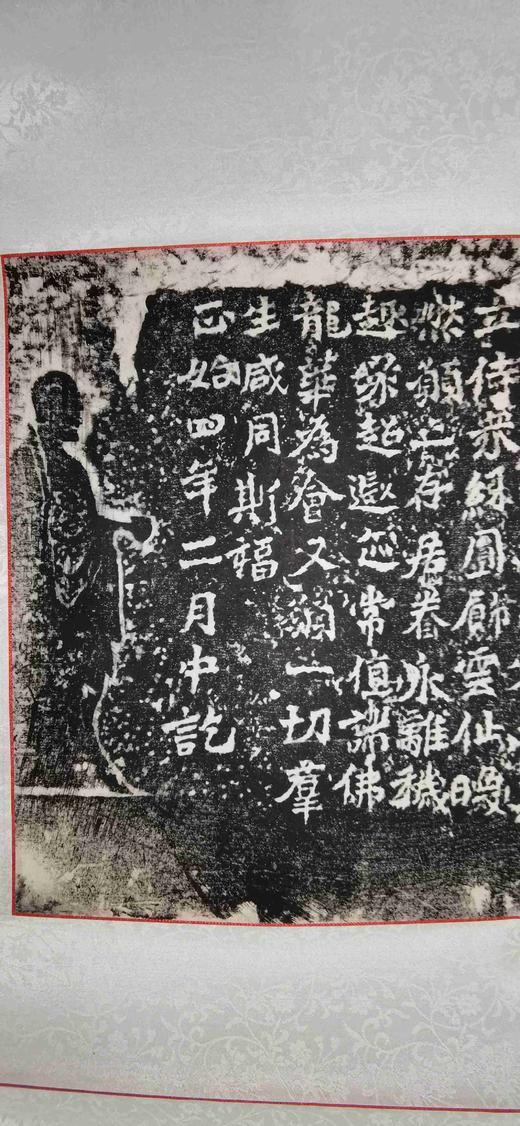 立侍衆綵圓飾雲仙曖
然願亡存居眷永離穢
趣超遐迹常值諸佛
龍華為會又願一切羣
生咸同斯福
正始四年二月中訖